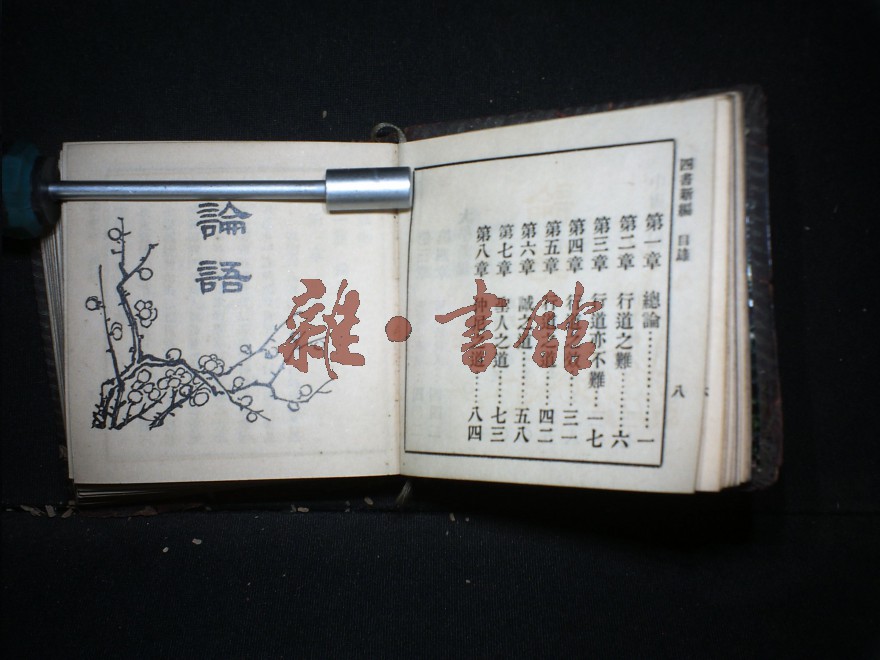 四書新編 目錄
八
第一章 總論…………一
第二章 行道之難……六
第三章 行道亦不難…一七
第四章 行……三一
第五章 行道之道……四二
第六章 誠之道……五八
第七章 聖人之道……七三
第八章 仲尼之道……八四
論語
雜·書館